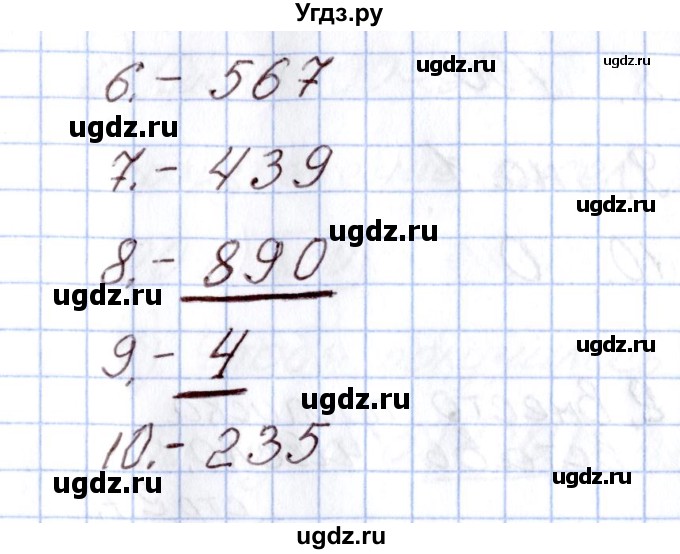 Угдз.ру
6.- 567
ugdz.ru
ugdz.ru
ugdz.ru
7.- 439
ugdz.ru
ugdz.ru
8.- 890
ugdz.ru
9.- 4
ugdz.ru
ugdz.ru
10.- 235
ugdz.ru
ugdz.ru
ugdz.ru